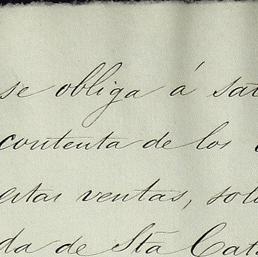 se obliga á sat
contenta de los
estas ventas, sol
da de Sta Cat